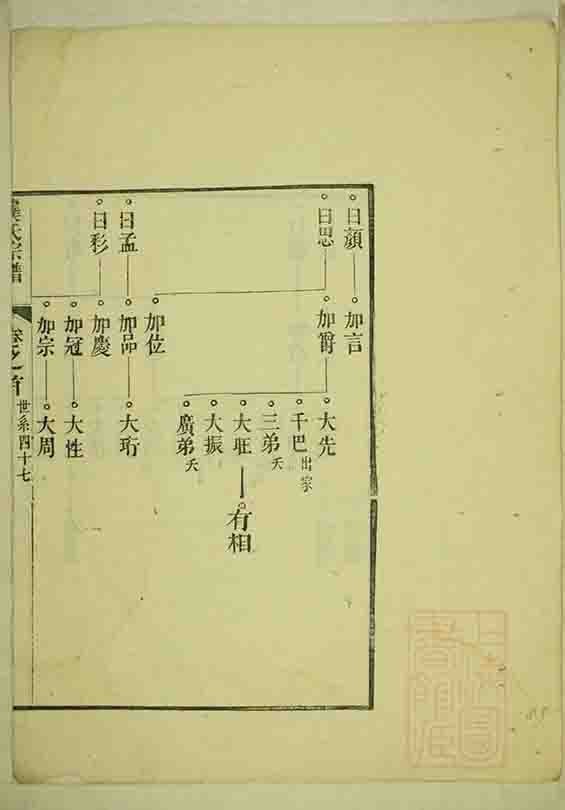 曰顏
加言
曰思
加爵
大先
千巴出家
三弟夭
大旺
有相
大振
廣弟夭
加位
曰孟
加品
大珩
曰彩
加慶
加冠
大性
加宗
大周
氏宗譜
卷之首
世系四十七